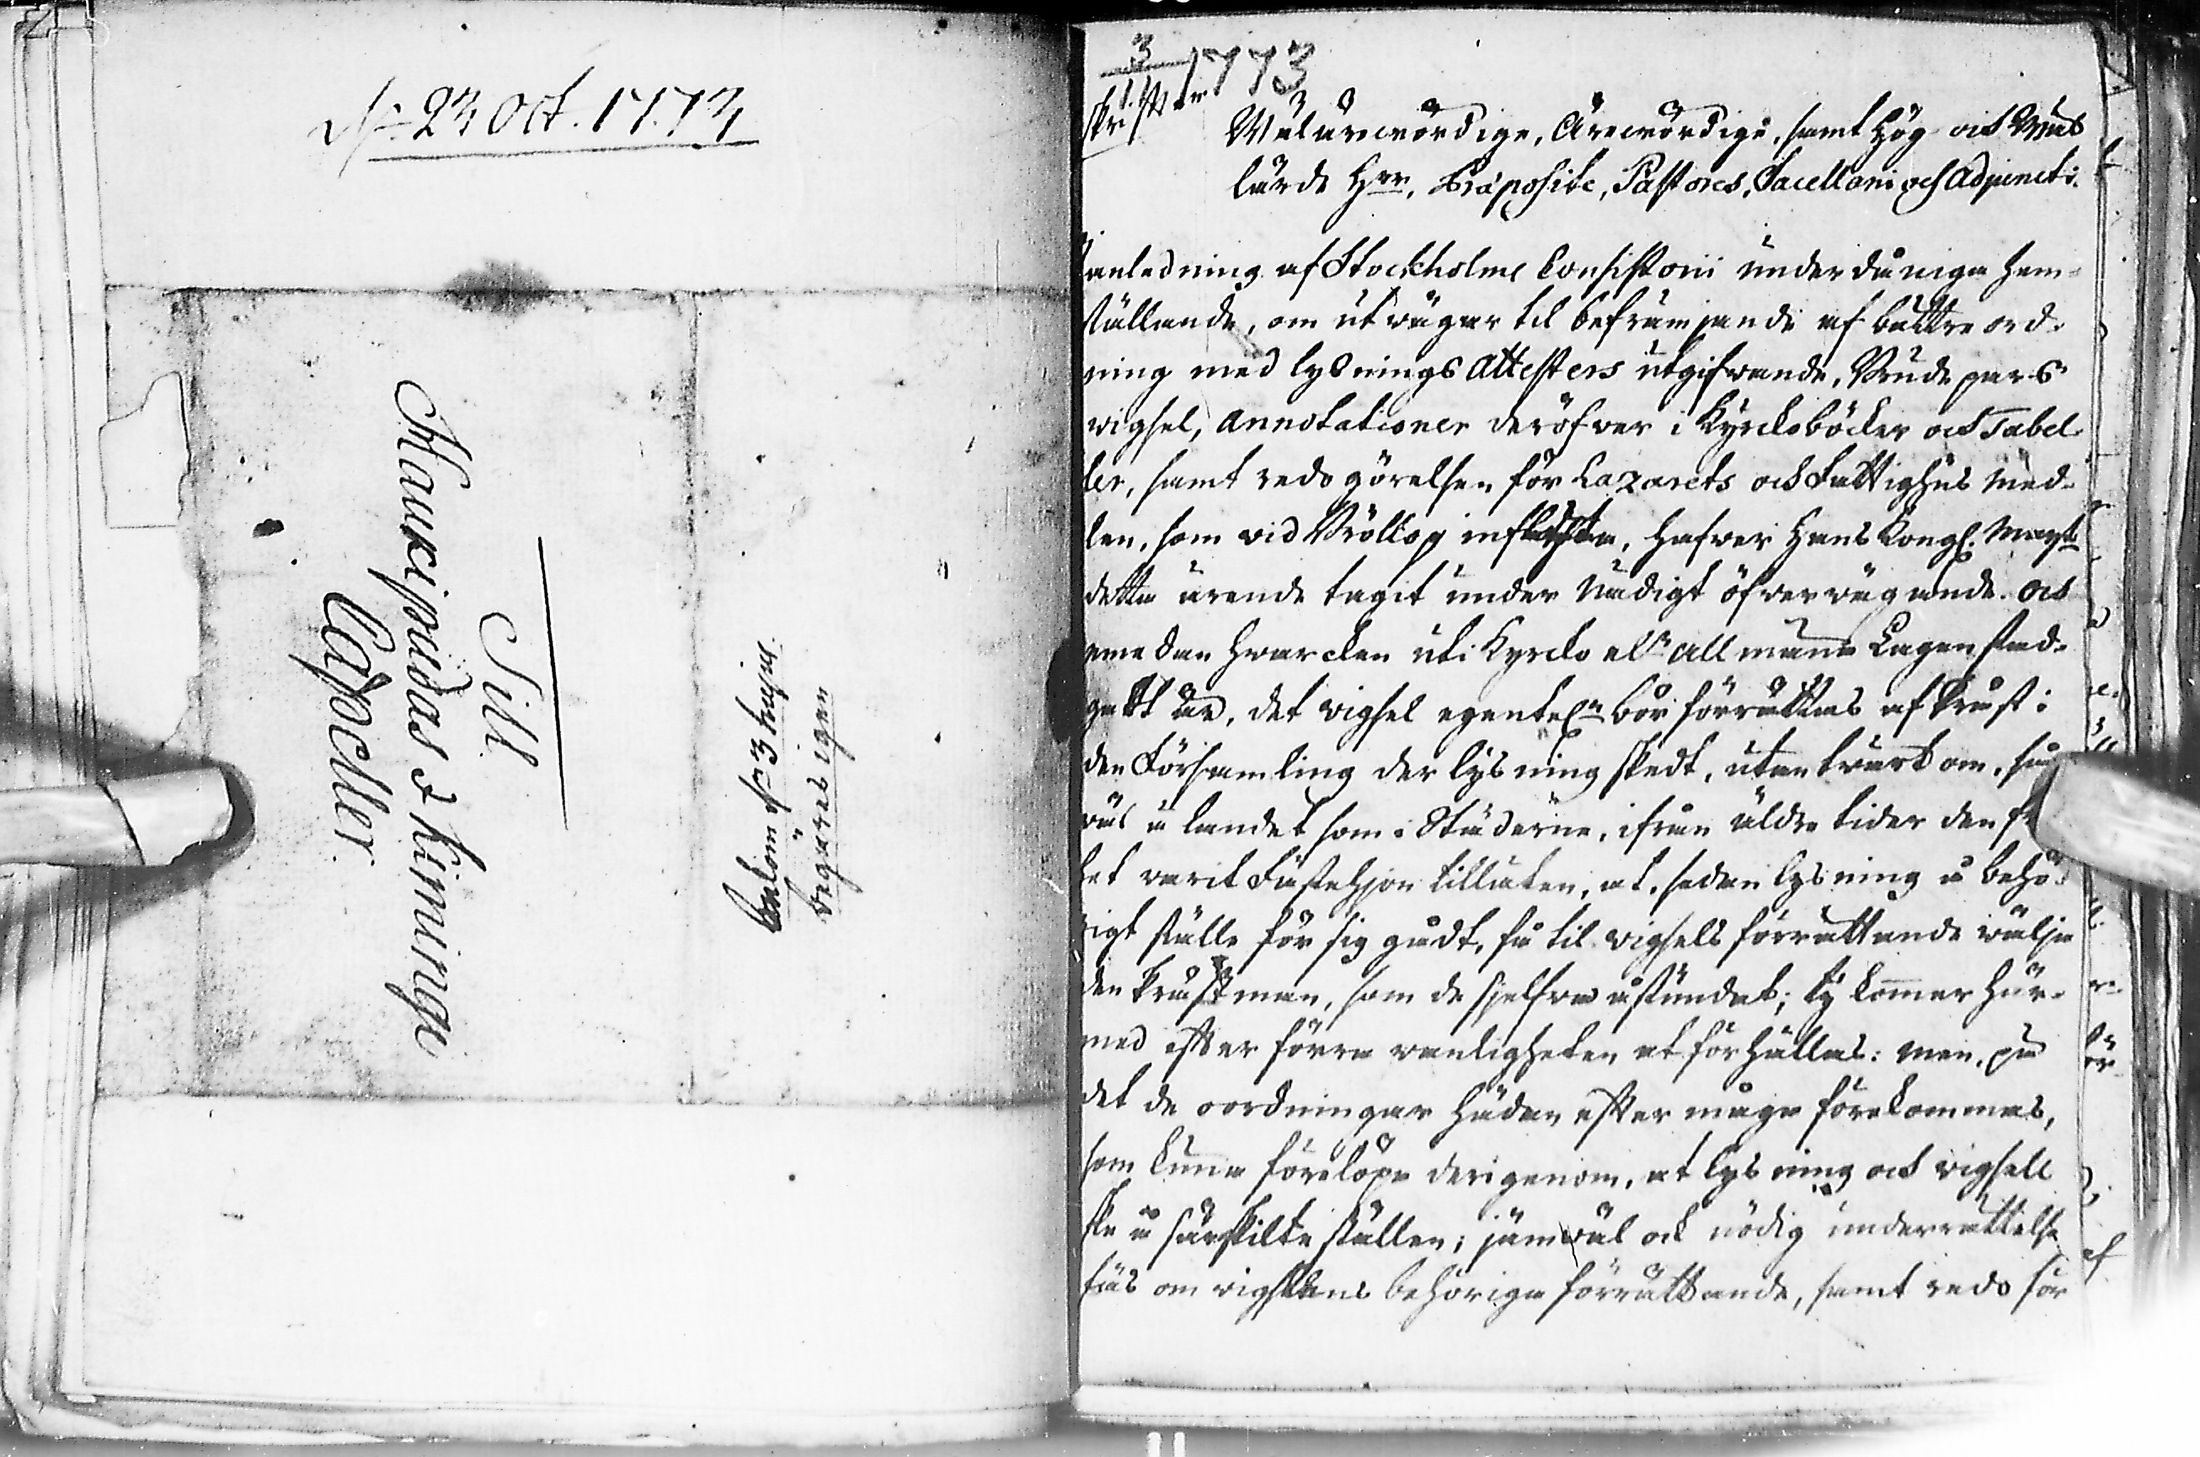 d. 23 Oct. 1773
Till
Haukipudas & Kiminge
Capeller
begäres igen
3 1773
Wälärewördige, Ärewördige, samt Hög- och Wäl
lärde Hrr, Præposite, Pastores, Sacellani och Adjuncti.
anledning af Stockholms Consistorii underdåniga hem-
ställande, om utwägar til befrämjande af bättre ord-
ning med lysnings Attesters utgifwande, Brudepars
wigsel, Annotationer deröfwer i Kyrckoböcker och Tabel-
ler, samt redogörelsen för Lazarets och Fattighus med-
len, som wid Bröllop inflyta, hafwer Hans Kongl. Mayt
detta ärende tagit under Nådigt öfwerwägande. Och
emedan hwarcken uti Kyrcko elr allmänna Lagen stad-
gadt är, det wigsel egentel. bör förrättas af Präst i
den Församling der lysning skedt, utan twärt om, så
wäl å landet som i Städerne, ifrån äldre tider den fri
het warit Fästehjon tillåten, at, sedan lysning å behö-
rigt ställe för sig gådt, få til wigsels förrättande wälja
den Prästman, som de sjelfwe åstundat; Ty kommer här-
med efter förra wanligheten at förhållas: men, på
det de oordningar hädan efter måge förekommas,
som kunna förelöpa derigenom, at lysning och wigsell
ske å särskilte ställen; jämwäl ock nödig underrättelse
fås om wigselns behöriga förrättande, samt redo för